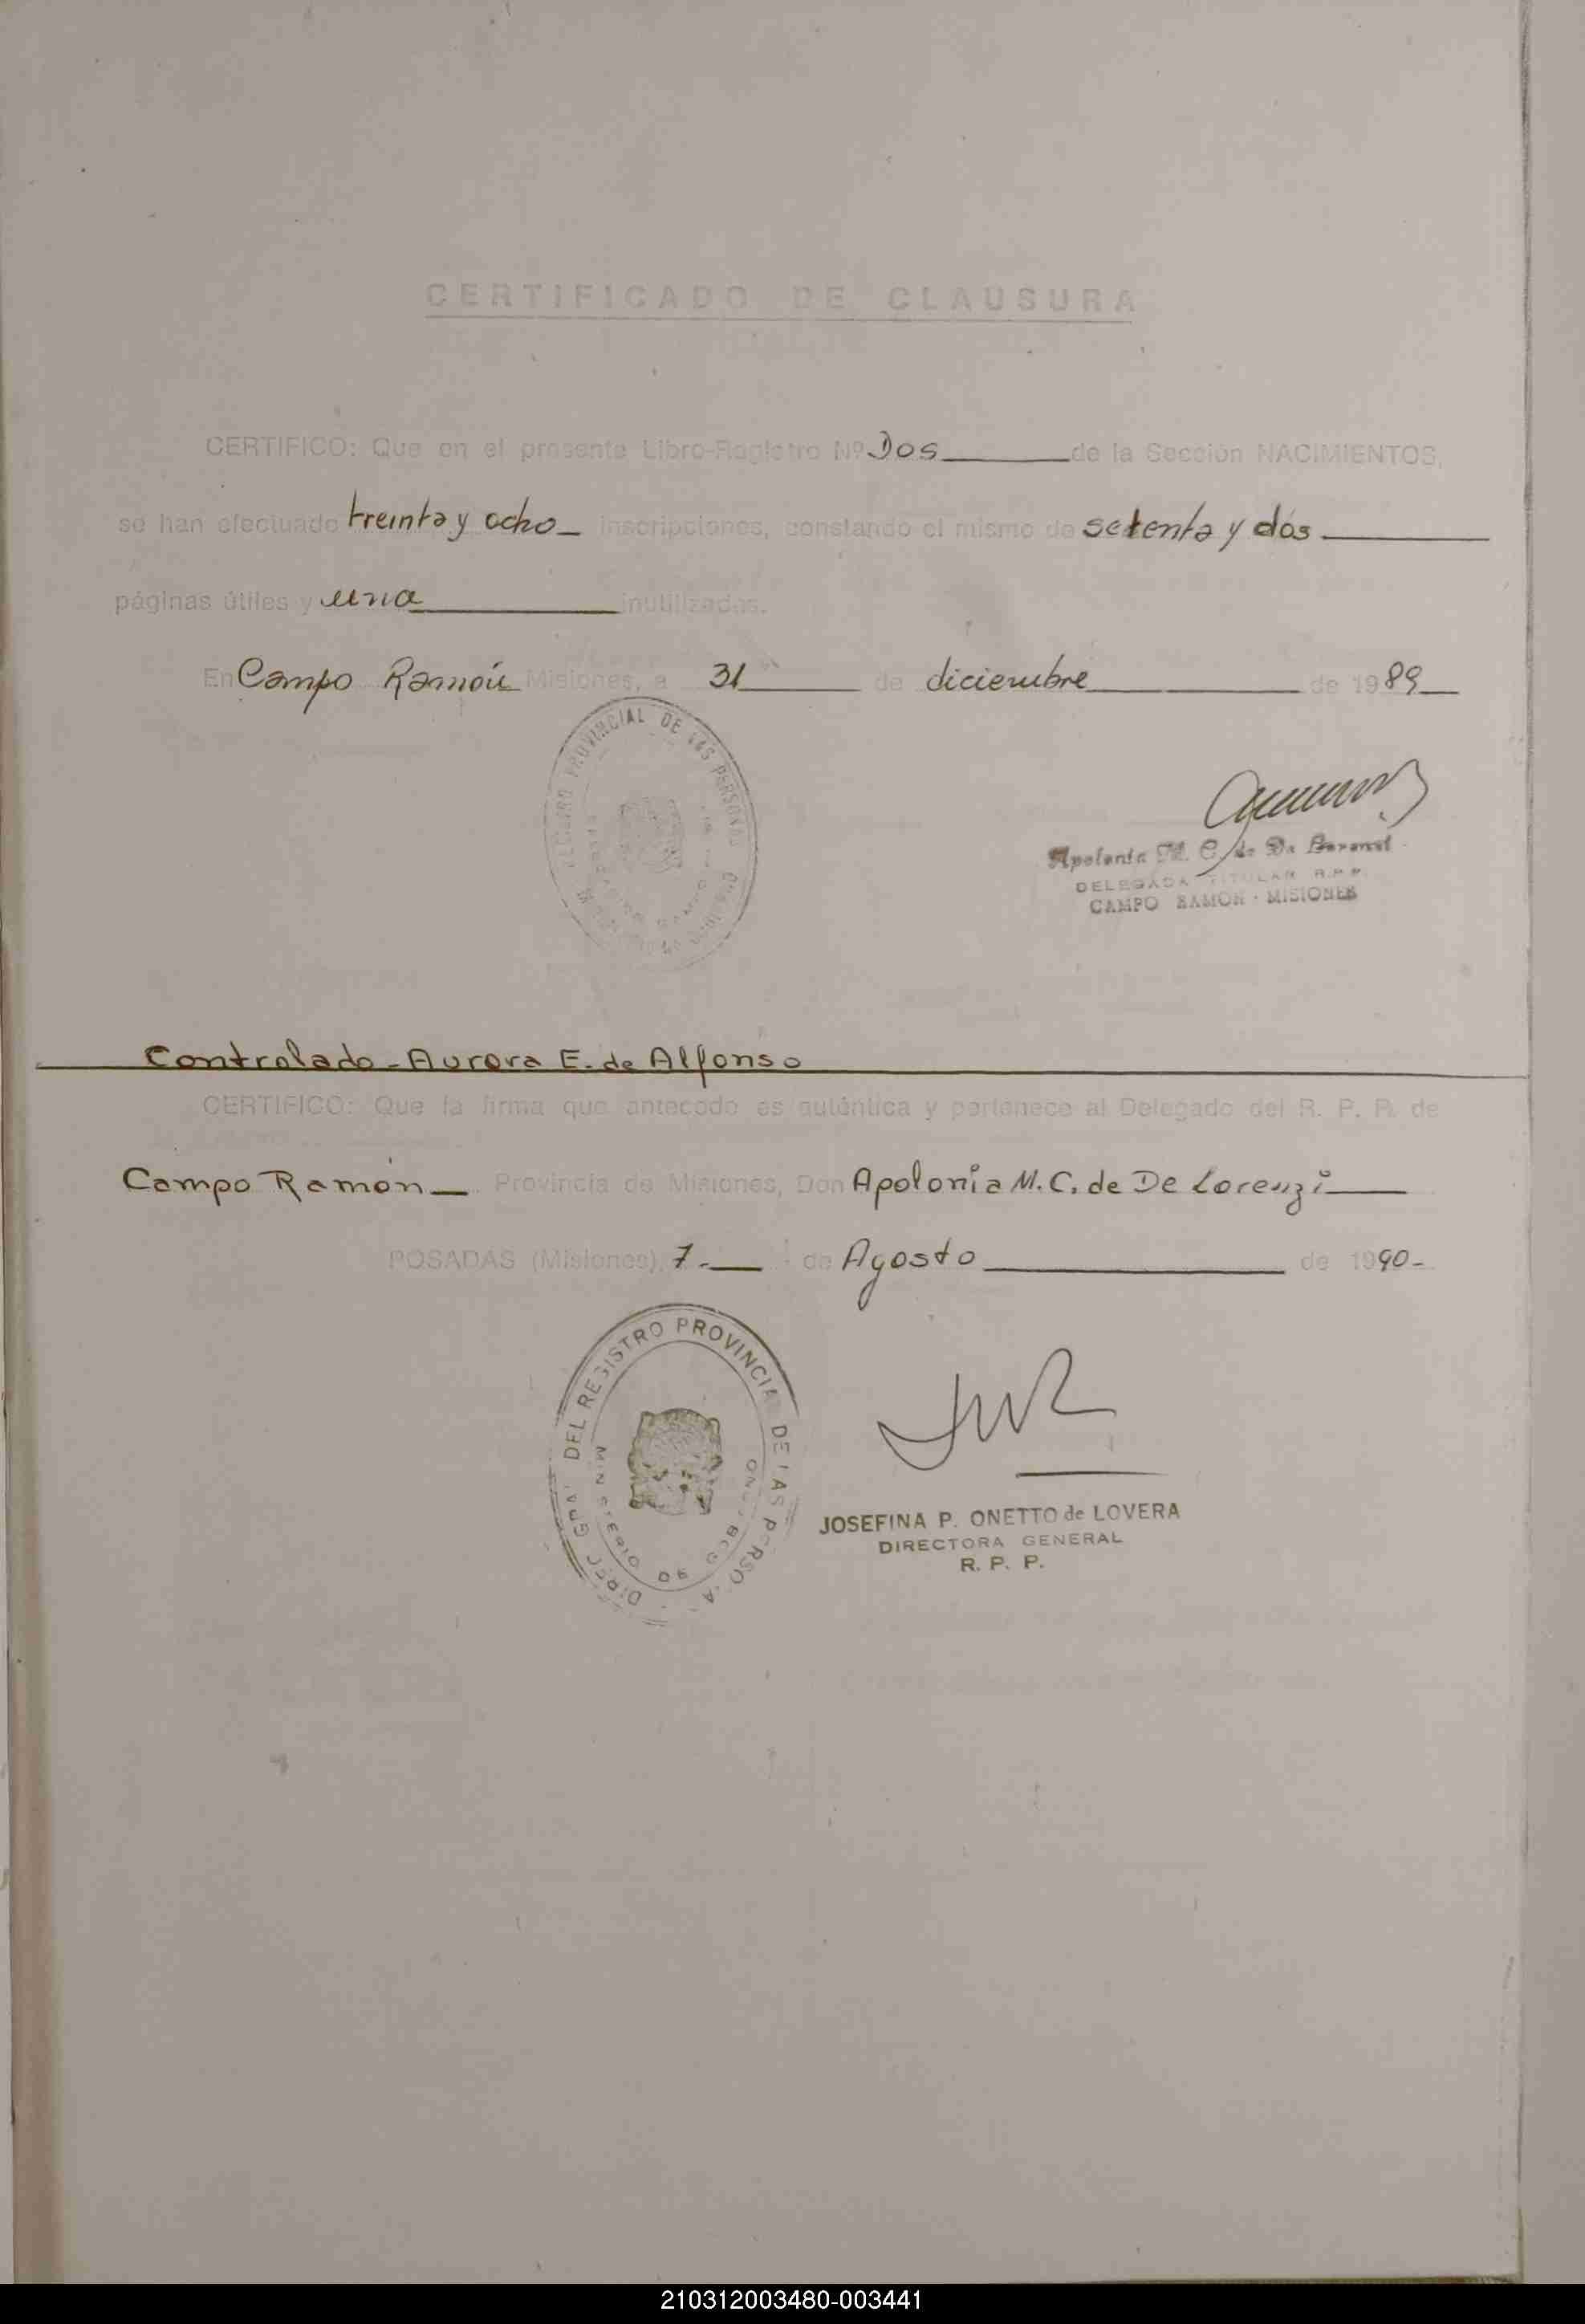 CERTIFICADO DE CLAUSURA
CERTIFICO: Que en el presente Libro-Registro Nº Dos de la Sección NACIMIENTOS,
se han efectuado treinta y ocho inscripciones, constando el mismo de setenta y dos
páginas útiles y una inutilizadas.
En Campo Ramón Misiones, a 31 de diciembre de 1989
REGISTRO PROVINCIAL DE LAS PERSONAS
Apolonia M. C. de De Lorenzi
DELEGADA TITULAR R.P.P.
CAMPO RAMON - MISIONES
Controlado - Aurora E. de Alfonso
CERTIFICO: Que la firma que antecede es auténtica y pertenece al Delegado del R. P. P. de
Campo Ramón Provincia de Misiones, Don Apolonia M. C. de De Lorenzi
POSADAS (Misiones), 7 - de Agosto de 1990 -
DEL REGISTRO PROVINCIAL DE LAS PERSONAS
MINISTERIO DE GOBIERNO
JOSEFINA P. ONETTO de LOVERA
DIRECTORA GENERAL
R. P. P.
210312003480-003441